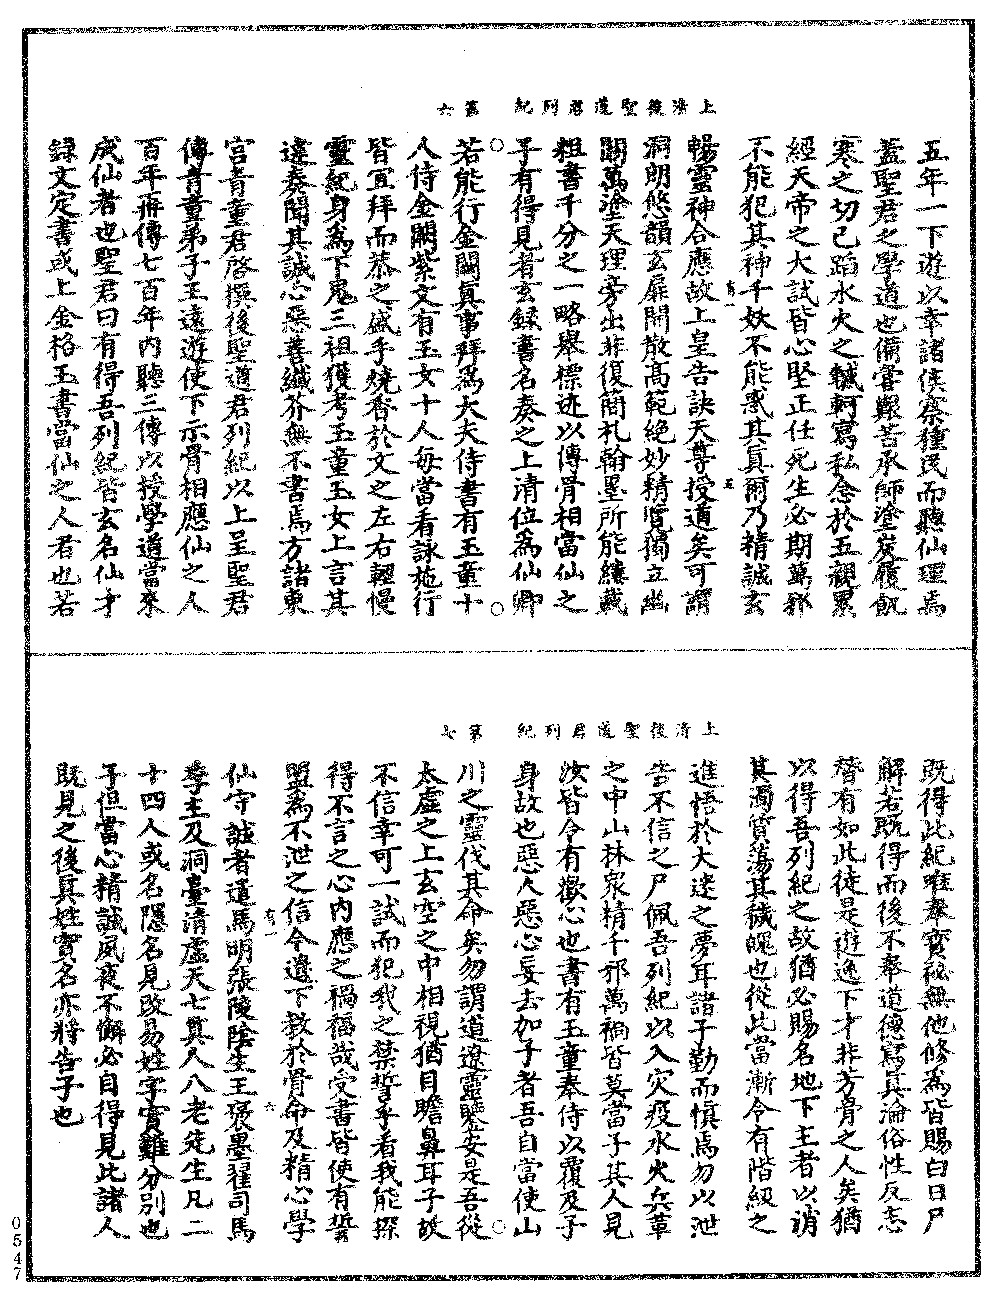 上清後聖道君列紀　第六
五年一下遊以幸諸侯察種民而聽仙理焉
蓋聖君之學道也備嘗艱苦承師塗炭履飢
寒之切己蹈水火之轗軻寫私念於五親累
經天帝之大試皆心堅正任死生必期萬邪
不能犯其神千妖不能惑其真爾乃精誠玄
有一
五
暢靈神合應故上皇告訣天尊授道矣可謂
洞朗悠韻玄扉開散高範絶妙精覽獨立幽
關萬塗天理旁出非復簡札翰墨所能纏載
粗書千分之一略舉標迹以傳骨相當仙之
子有得見者玄録書名奏之上清位為仙卿
若能行金闕真事拜為大夫侍書有玉童十
人侍金闕紫文有玉女十人每當看詠施行
皆宜拜而恭之盛手燒香於文之左右輕慢
靈紀身為下鬼三祖獲考玉童玉女上言其
違奏聞其誠心惡善纖芥無不書焉方諸東
宮青童君啓撰後聖道君列紀以上呈聖君
傳青童弟子王遠遊使下示骨相應仙之人
百年再傳七百年內聽三傳以授學道當來
成仙者也聖君曰有得吾列紀皆玄名仙才
録文定書或上金格玉書當仙之人君也若
上清後聖道君列紀　第七
既得此紀唯奉寶祕無他修為皆賜白日尸
解若既得而後不奉道德寫真淪俗性反忘
替有如此徒是遊逸下才非芳骨之人矣猶
以得吾列紀之故猶必賜名地下主者以消
其濁質蕩其穢魄也從此當漸令有階級之
進悟於大迷之夢耳諸子勤而慎焉勿以泄
告不信之尸佩吾列紀以入灾疫水火兵革
之中山林衆精千邪萬禍皆莫當子其人見
汝皆令有歡心也書有玉童奉侍以覆及子
身故也惡人惡心妄去加子者吾自當使山
川之靈伐其命矣勿謂道遼靈變妄是吾從
太虛之上玄空之中相視猶目瞻鼻耳子故
不信幸可一試而犯我之禁誓乎看我能探
得不言之心內應之禍福哉受書皆使有誓
盟為不泄之信今遺下教於骨命及精心學
有一
六
仙守誠者道馬明張陵陰生王褒墨翟司馬
季主及洞臺清虛天七真人八老先生凡二
十四人或名隱名見改易姓字實難分別也
子但當心精誠夙夜不懈必自得見此諸人
既見之後真姓實名亦將告子也
0547